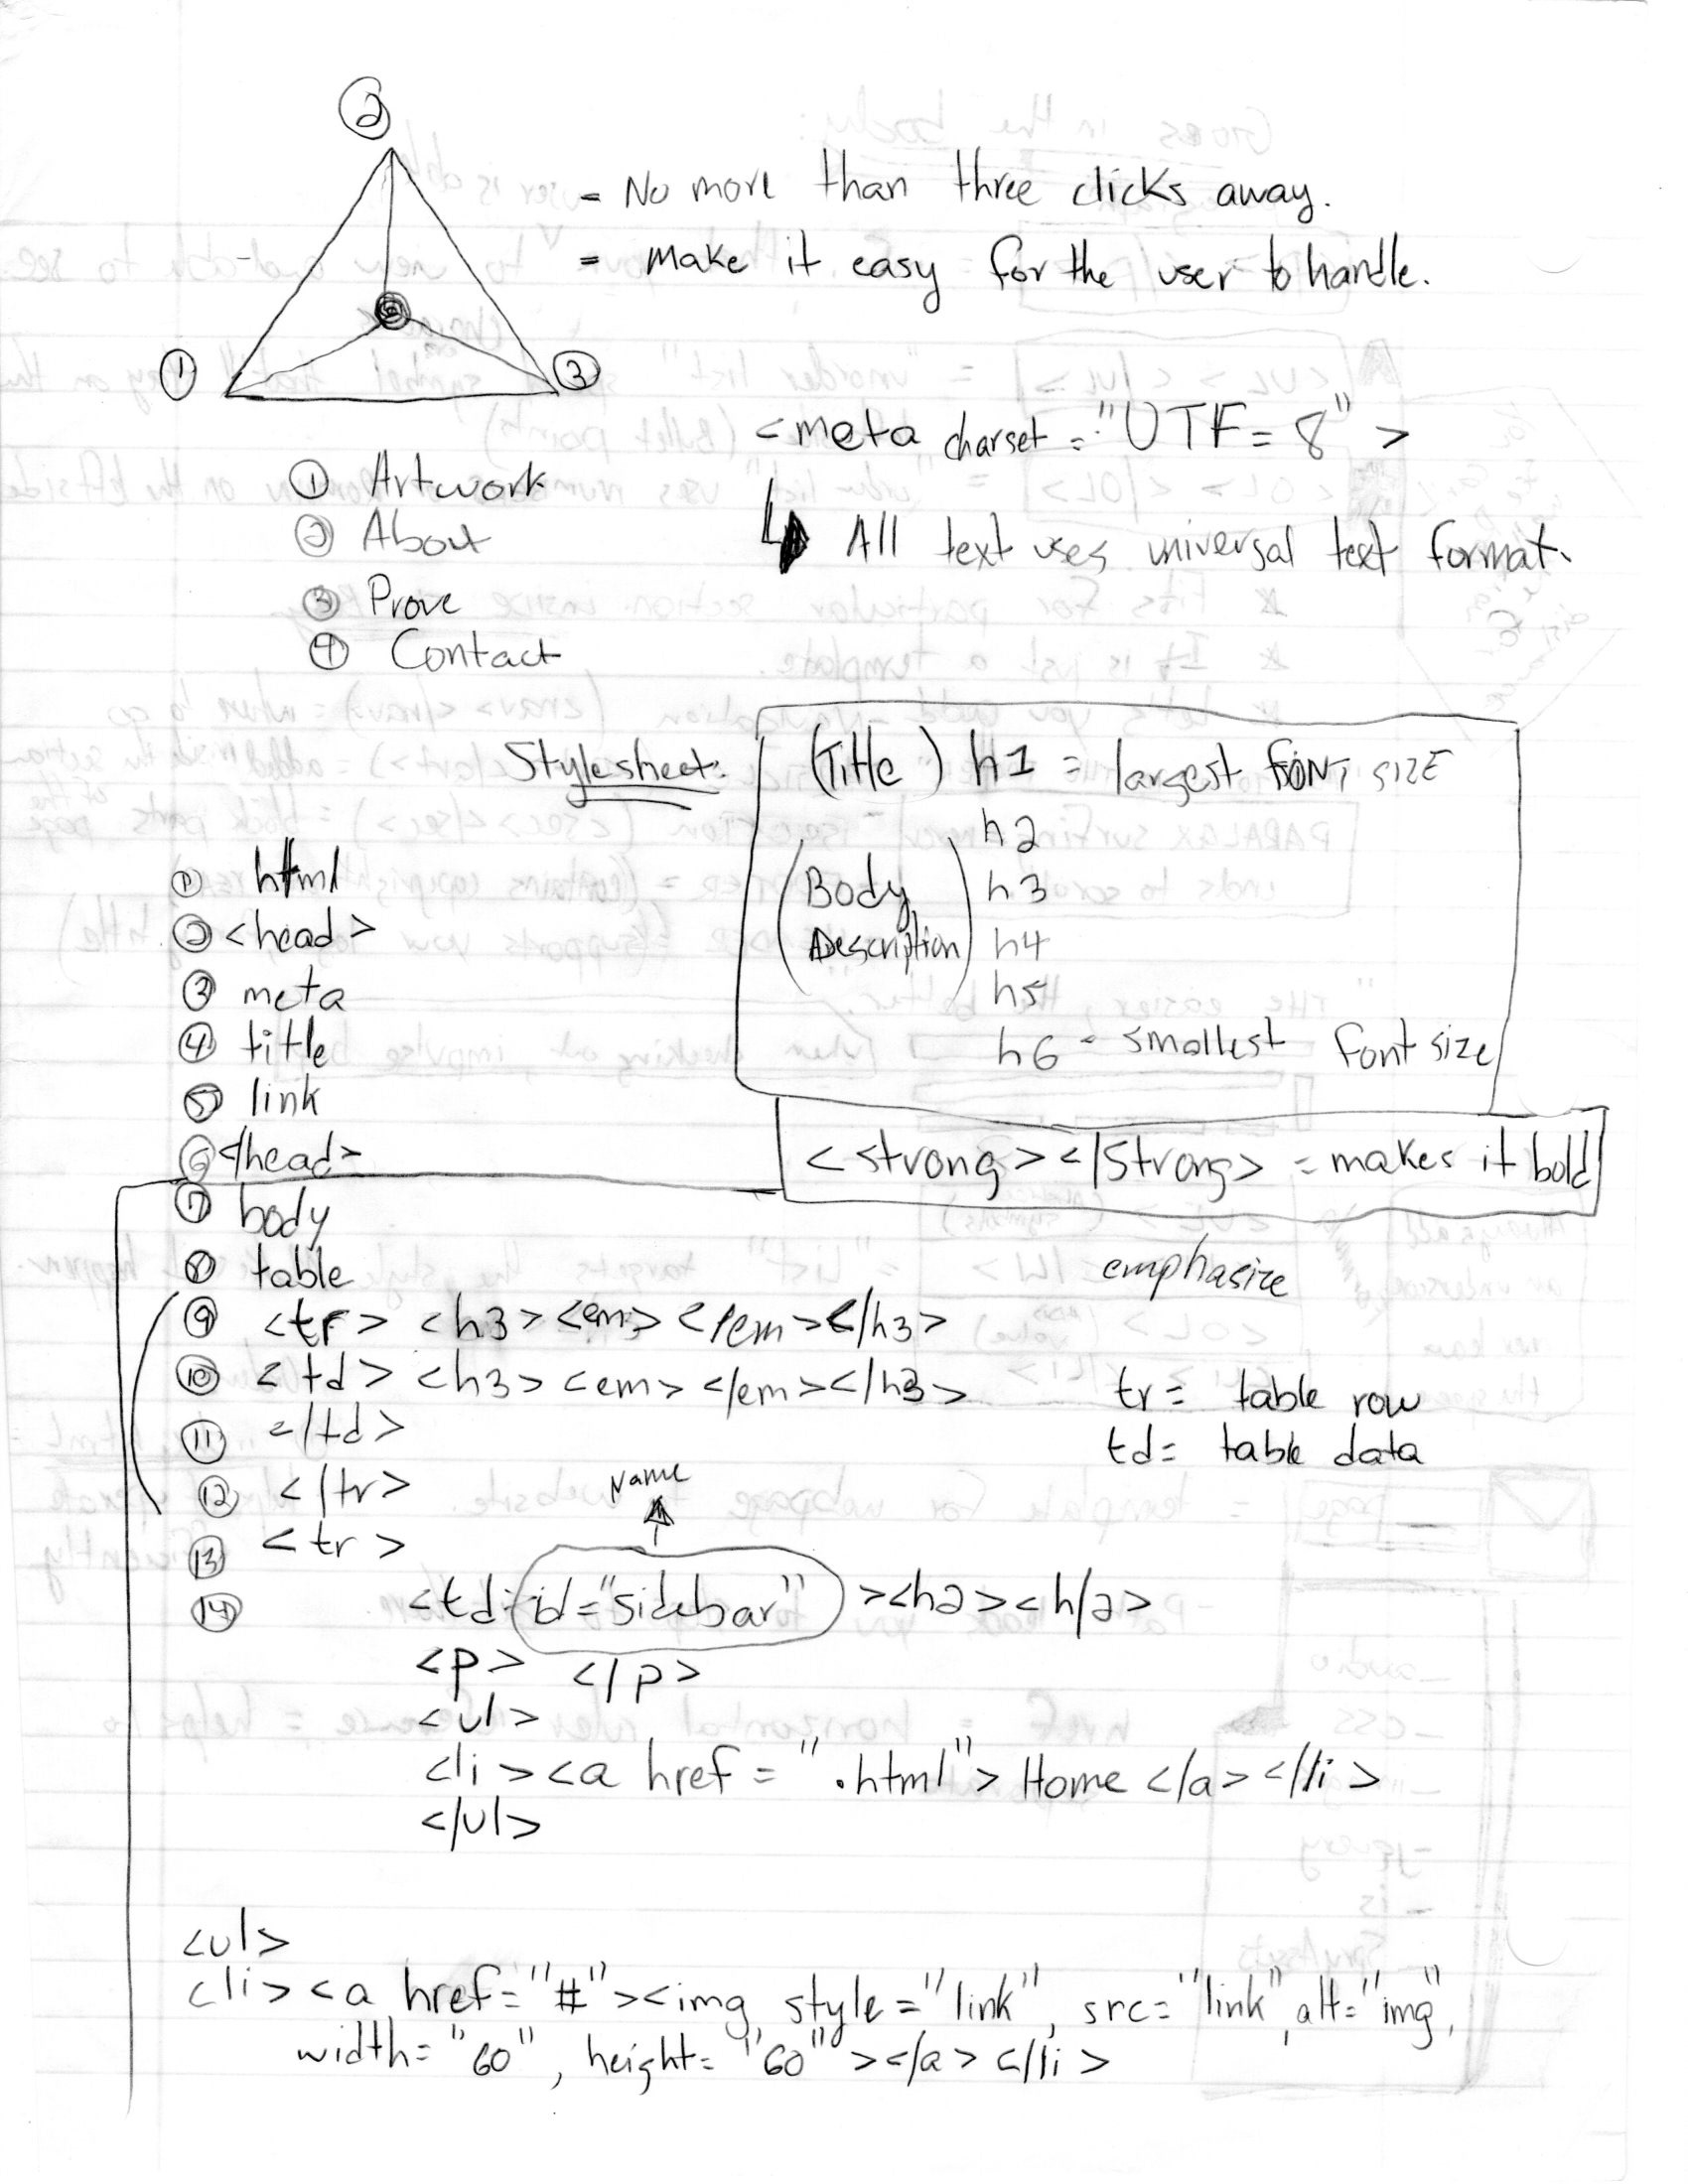 ②
= No more than three clicks away.
= make it easy for the user to handle.
① ③
<meta charset = "UTF=8" >
↳ All text uses universal text format.
① Artwork
② About
③ Prove
④ Contact
Stylesheet:
(Title) h1 = largest FONT SIZE
h2
(Body Description) h3
h4
h5
h6 - smallest font size
<strong></Strong> = makes it bold
① html
② <head>
③ meta
④ title
⑤ link
⑥ </head>
⑦ body
⑧ table
emphasize
⑨ <tr> <h3><em></em></h3>
⑩ <td> <h3><em></em></h3>
tr = table row
⑪ </td>
td = table data
⑫ </tr>
Name
⑬ <tr>
⑭ <td id="sidebar" ><h2><h/2>
<p> </p>
<ul>
<li><a href = ".html"> Home </a></li>
</ul>
<ul>
<li><a href="#"><img style="link", src="link", alt="img",
width="60", height="60"></a></li>